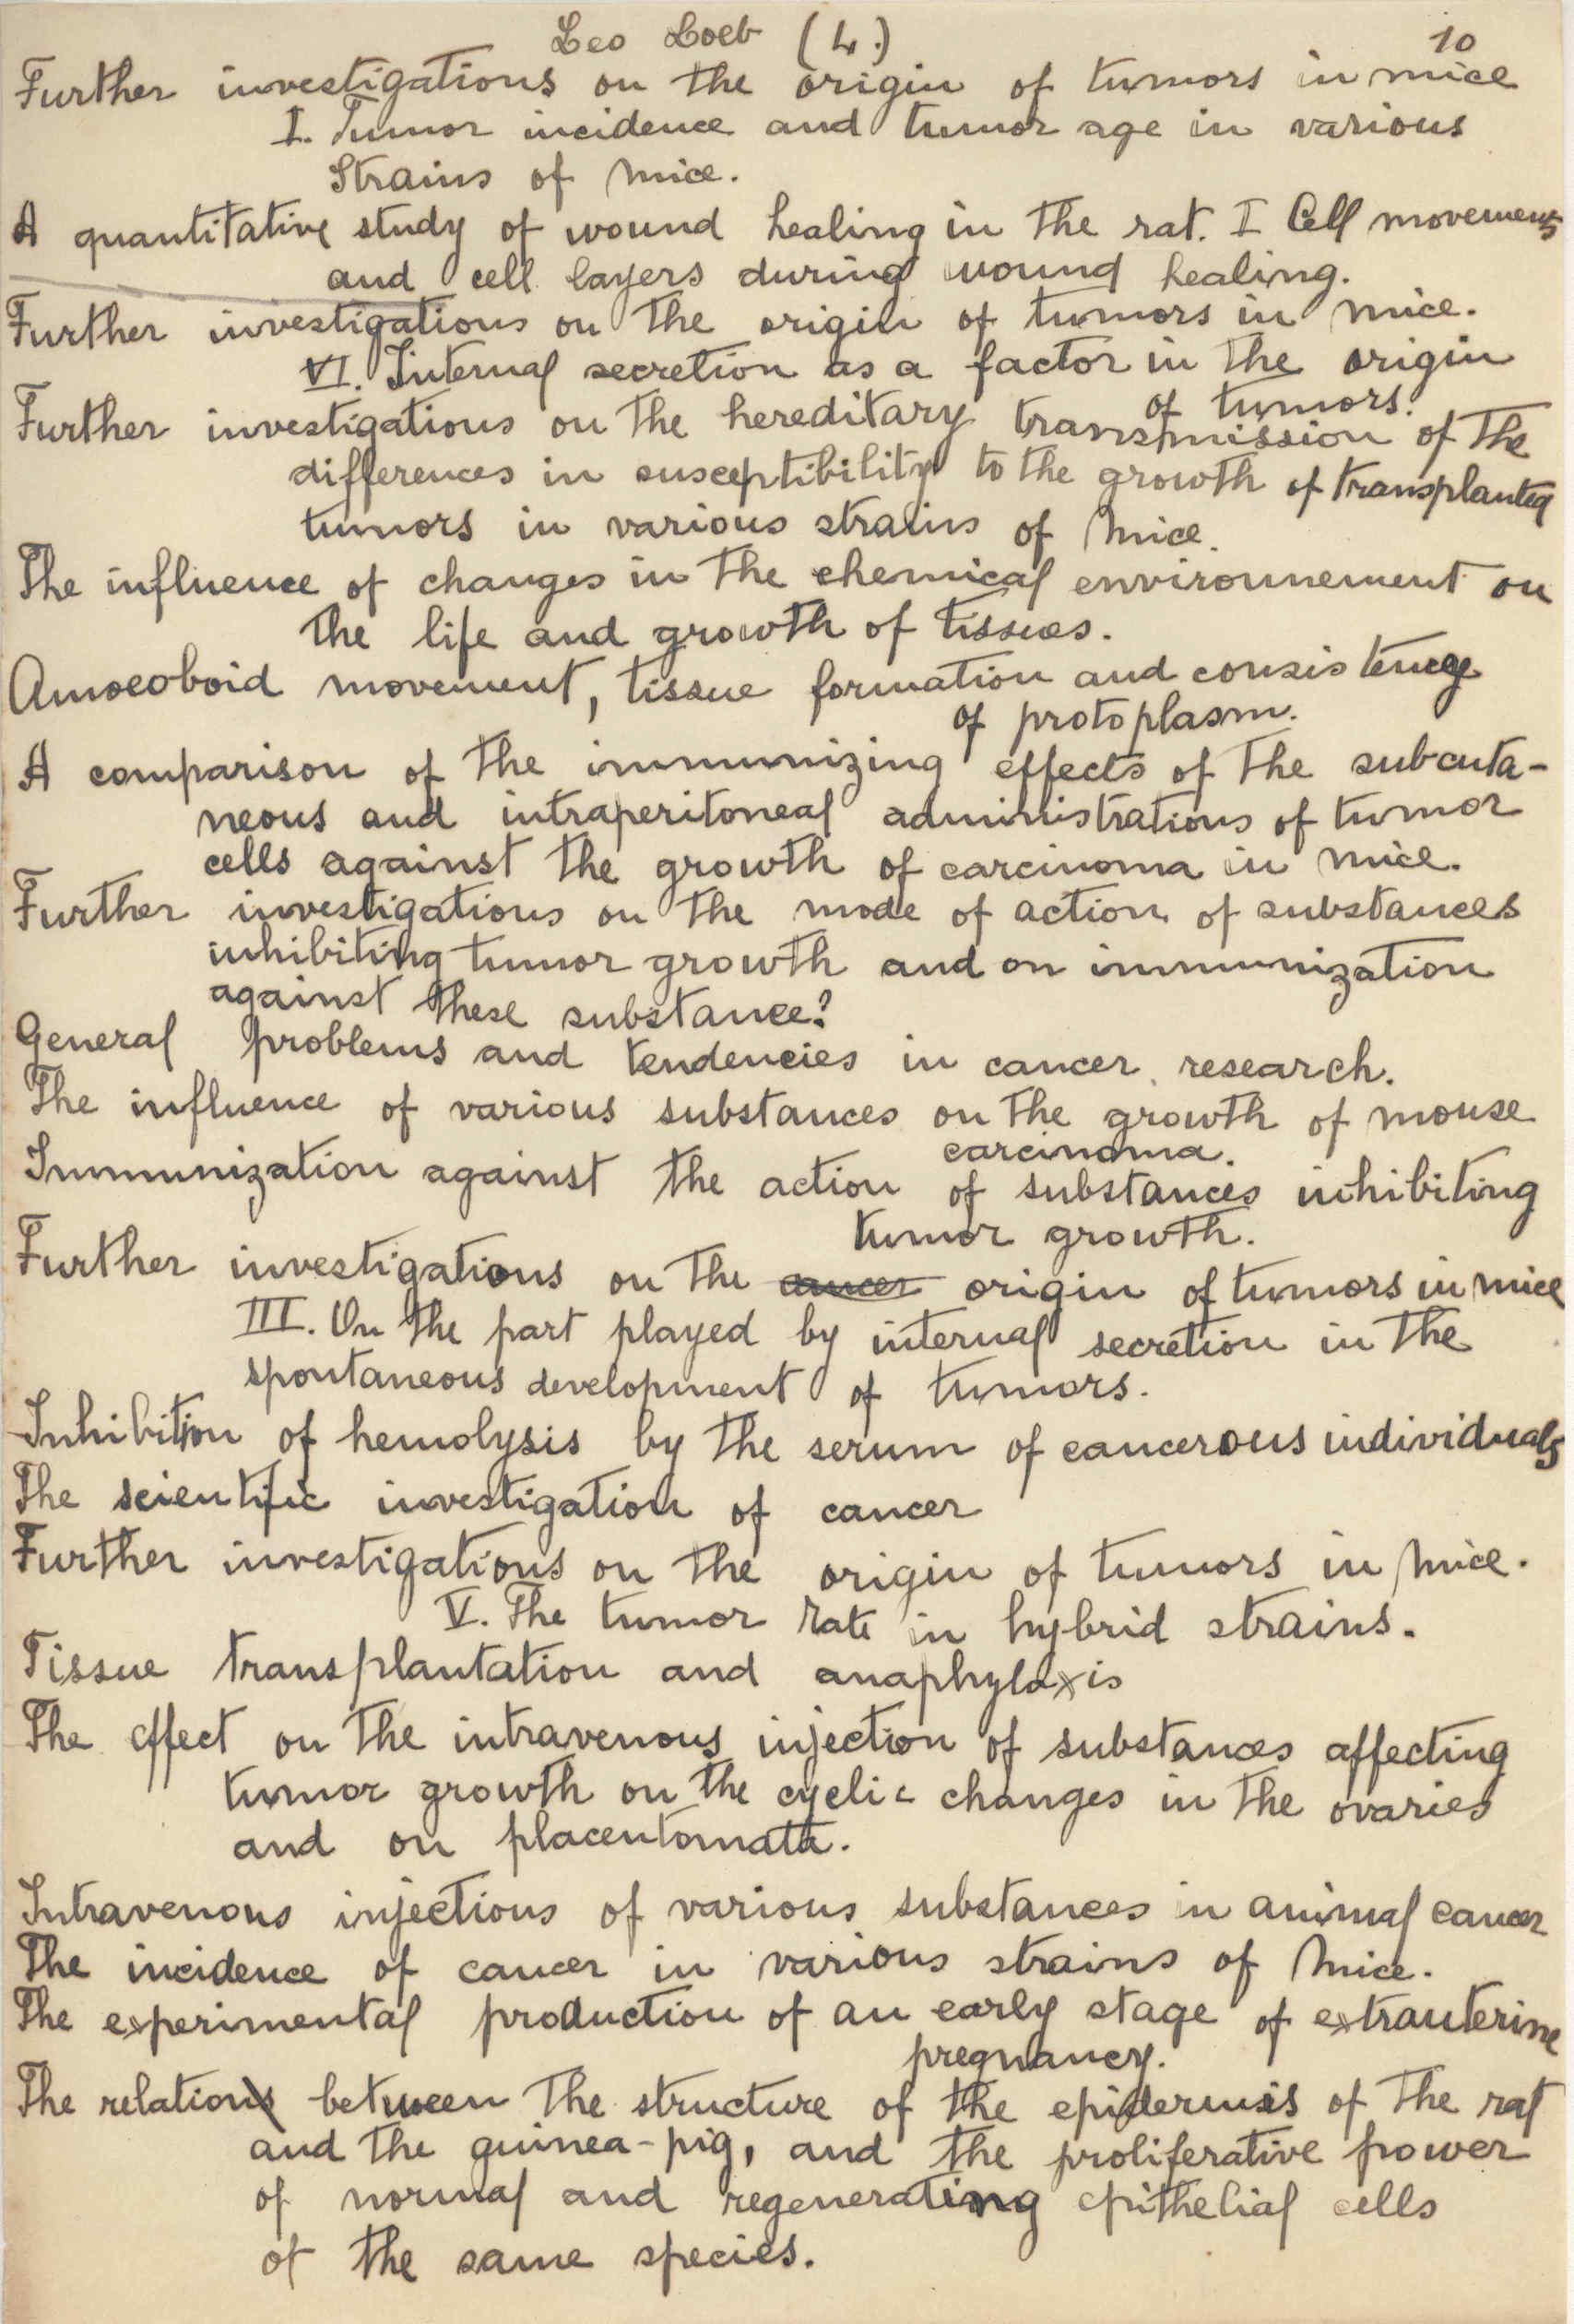 Leo Loeb (4.) 10
Further investigations on the origin of tumors in mice
I. Tumor incidence and tumor age in various
Strains of mice.
A quantitative study of wound healing in the rat. I Cell movements
and cell layers during wound healing.
Further investigations on the origin of tumors in mice.
VI. Internal secretion as a factor in the origin
of tumors.
Further investigations on the hereditary transmission of the
differences in susceptibility to the growth of transplanted
tumors in various strains of mice.
The influence of changes in the chemical environnement on
the life and growth of tissues.
Amoeoboid movement, tissue formation and consistency
of protoplasm.
A comparison of the immunizing effects of the subcuta-
neous and intraperitoneal administrations of tumor
cells against the growth of carcinoma in mice.
Further investigations on the mode of action of substances
inhibiting tumor growth and on immunization
against these substance?
General problems and tendencies in cancer research.
The influence of various substances on the growth of mouse
carcinoma.
Immunization against the action of substances inhibiting
tumor growth.
Further investigations on the cancer origin of tumors in mice
III. On the part played by internal secretion in the
spontaneous development of tumors.
Inhibition of hemolysis by the serum of cancerous individuals
The scientific investigation of cancer
Further investigations on the origin of tumors in mice.
V. The tumor rate in hybrid strains.
Tissue transplantation and anaphylaxis
The effect on the intravenous injection of substances affecting
tumor growth on the cyclic changes in the ovaries
and on placentomata.
Intravenous injections of various substances in animal cancer
The incidence of cancer in various strains of mice.
The experimental production of an early stage of extrauterine
pregnancy.
The relation between the structure of the epidermis of the rat
and the guinea-pig, and the proliferative power
of normal and regenerating epithelial cells
of the same species.